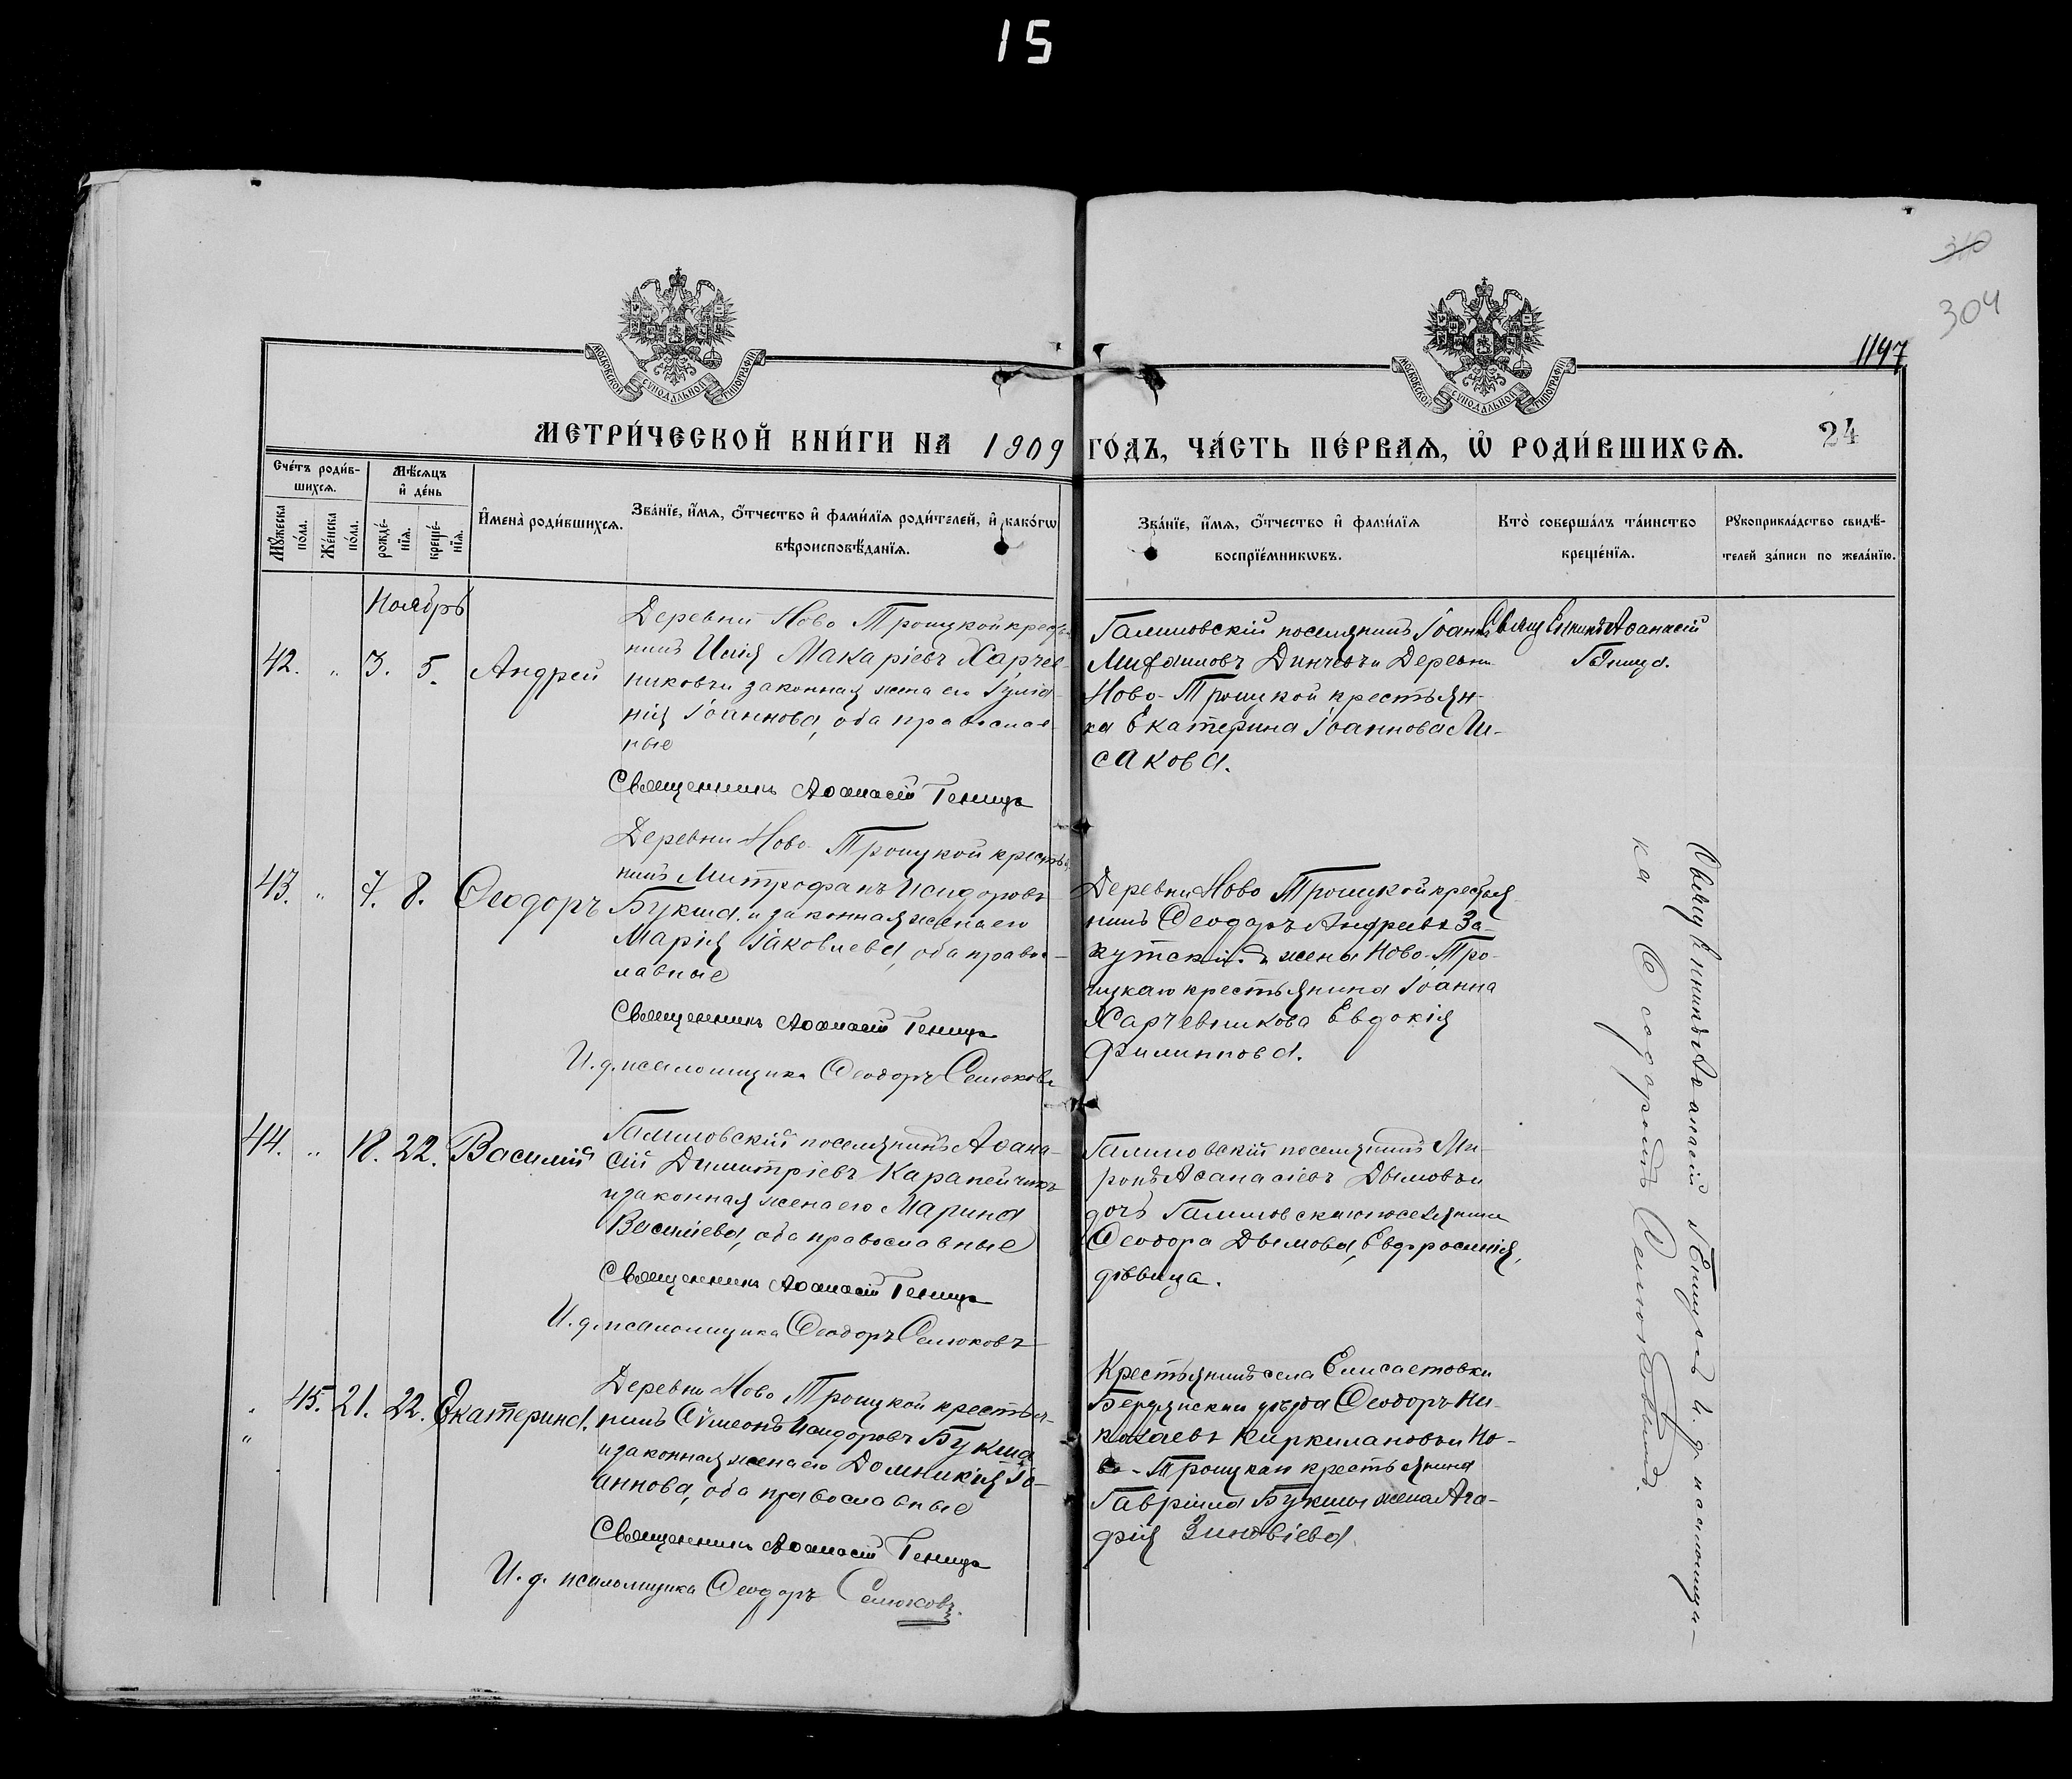 15
310
304
1197
МОСКОВСКОЙ СѴНОДАЛЬНОЙ ТИПОГРАФІИ
МОСКОВСКОЙ СѴНОДАЛЬНОЙ ТИПОГРАФІИ
МЕТРИ́ЧЕСКОЙ КНИ́ГИ НА 1909 ГО́ДЪ, ЧА́СТЬ ПЕ́РВАѦ, Ѡ҆ РОДИ́ВШИХСѦ.
24
Сче́тъ роди́в-
шихсѧ.
Мѣ́сѧцъ
и҆ де́нь
Мꙋ́жеска
по́ла.
Же́нска
по́ла.
рожде́-
нїѧ.
креще́-
нїѧ.
И҆мена̀ роди́вшихсѧ.
Зва́нїе, и҆́мѧ, ѻ҆́тчество и҆ фами́лїѧ роди́телей, и҆ како́гѡ
вѣроисповѣ́данїѧ.
Зва́нїе, и҆́мѧ, ѻ҆́тчество и҆ фами́лїѧ
воспрїе́мникѡвъ.
Кто̀ соверша́лъ та́инство
креще́нїѧ.
Рꙋкоприкла́дство свидѣ́-
телей за́писи по жела́нїю.
Ноябрь
42. „ 3. 5. Андрей
Деревни Ново Троицкой крестья
нинъ Илія Макаріевъ Харчев-
никовъ и законная жена его Іулiа-
нія Іоаннова, оба православ-
ные
Священникъ Аѳанасій Геница
Галиловскій поселянинъ Іоаннъ
Динчевъ и Деревни
Ново-Троицкой крестьян-
ка Екатерина Іоаннова Ли-
сакова.
Священникъ Аѳанасій
Геница.
43. „ 7. 8. Ѳеодоръ
Деревни Ново Троицкой крестья
нинъ Митрофанъ Исидоровъ
Букша, и законная жена его
Марія Іаковлева, оба правос-
лавные
Священникъ Аѳанасій Геница
И. д. псаломщика Ѳеодоръ Селюковъ
Деревни Ново Троицкой крестья
нинъ Ѳеодоръ Андреевъ За-
кутскій и жена Ново-Тро-
ицкаго крестьянина Іоанна
Харчевникова Евдокія
Филиппова.
44. „ 18. 22. Василій
Галиловскій поселянинъ Аѳана-
сій Димитріевъ Карапейчикъ
и законная жена его Марина
Василіева, оба православные
Священникъ Аѳанасій Геница
И. д. псаломщика Ѳеодоръ Селюковъ
Галиловскій поселянинъ Ми-
ронъ Аѳанасіевъ Дымовъ и
дочь Галиловскаго поселянина
Ѳеодора Дымова, Евфросинія,
дѣвица.
„ 45. 21. 22. Екатерина.
Деревни Ново Троицкой крестья-
нинъ Сѵмеонъ Исидоровъ Букша
и законная жена его Домникія Іо-
аннова, оба православные
Священникъ Аѳанасій Геница
И. д. псаломщика Ѳеодоръ Селюковъ.
Крестьянинъ села Елисаетовки
Бердянскаго уѣзда Ѳеодоръ Ни-
колаевъ Киркилановъ и Но-
во-Троицкаго крестьянина
Гавріила Букши жена Ага-
фія Зиновіева.
Священникъ Аѳанасій Геница съ И. д. псаломщи-
ка Ѳеодоромъ Селюковымъ.